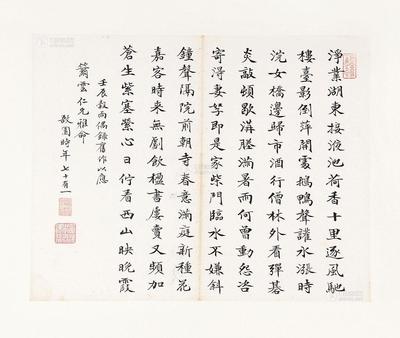 淨業湖東接液池荷香十里逐風馳
樓臺影倒萍開處鵝鴨聲讙水漲時
浣女橋邊歸市酒行僧林外看彈棊
炎歊頻歇溝塍滿暑雨何曾動怨咨
寄得妻孥即是家柴門臨水不嫌斜
鐘聲隔院前朝寺春意滿庭新種花
嘉客時來無劇飲楹書屢賣又頻加
蒼生紫塞縈心日佇看西山映晚霞
壬辰穀雨偶錄舊作以應
簫雲仁兄雅命
園時年七十有一